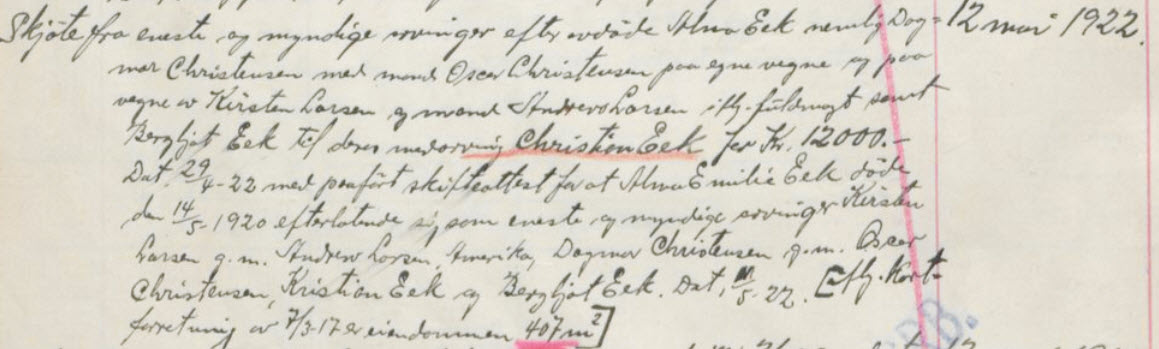 Skjöte fra eneste og myndige arvinger efter avdöde Alma Eek nemlig Dag= 12 mai 1922.
mar Christensen med mand Oscar Christensen paa egne vegne og paa
vegne av Kirsten Larsen og mand Andrew Larsen iflg. fuldmagt samt
Bergljot Eek til deres medarving Christian Eek for Kr. 12000.-
Dat. 29/4-22 med paafört skifteattest for at Alma Emilie Eek döde
den 14/5-1920 efterlatende sig som eneste og myndige arvinger Kirsten
Larsen g.m. Andrew Larsen, Amerika, Dagmar Christensen g.m. Oscar
Christensen, Kristian Eek og Bergljot Eek. Dat, 11/5-22. [Iflg. Kart-
forretning av 7/3-17 er eiendommen 407 m²]